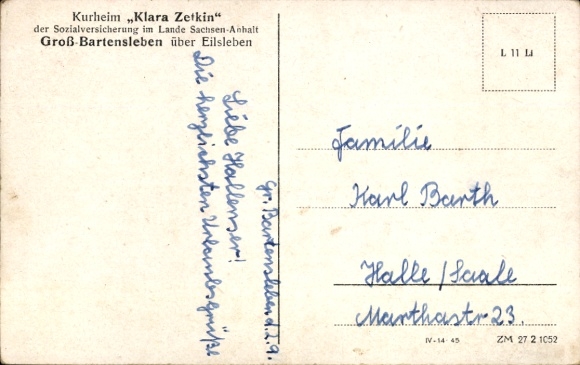 Kurheim „Klara Zetkin“
der Sozialversicherung im Lande Sachsen-Anhalt
Groß-Bartensleben über Eilsleben
L 11 Li
Gr. Bartensleben d. 2. 9.
Liebe Hallenser!
Die herzlichsten Urlaubsgrüße
Familie
Karl Barth
Halle/Saale
Marthastr 23.
IV-14-45
ZM 27 2 1052